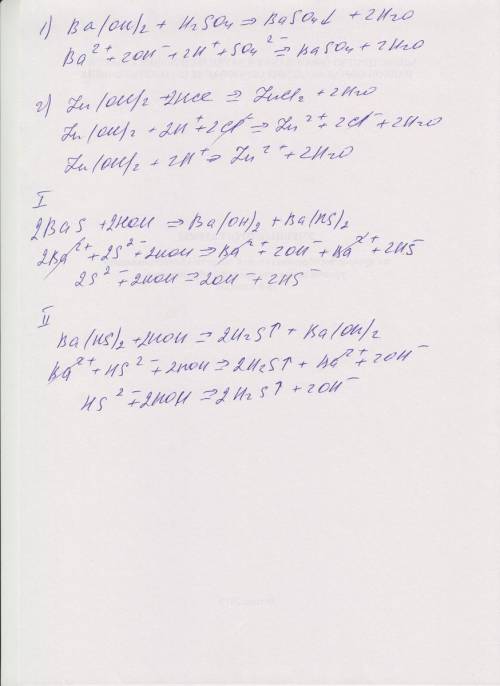 1) Ba(OH)2 + H2SO4 ⇒ BaSO4↓ + 2H2O
Ba2+ + 2OH- + 2H+ + SO4 2- = BaSO4 + 2H2O
2) Zn(OH)2 + 2HCl = ZnCl2 + 2H2O
Zn(OH)2 + 2H+ + 2Cl- = Zn2+ + 2Cl- + 2H2O
Zn(OH)2 + 2H+ = Zn2+ + 2H2O
I
2BaS + 2HOH ⇒ Ba(OH)2 + Ba(HS)2
2Ba2+ + 2S2- + 2HOH ⇒ Ba2+ + 2OH- + Ba2+ + 2HS-
2S2- + 2HOH = 2OH- + 2HS-
II
Ba(HS)2 + 2HOH = 2H2S↑ + Ba(OH)2
Ba2+ + HS2- + 2HOH = 2H2S↑ + Ba2+ + 2OH-
HS2- + 2HOH = 2H2S↑ + 2OH-